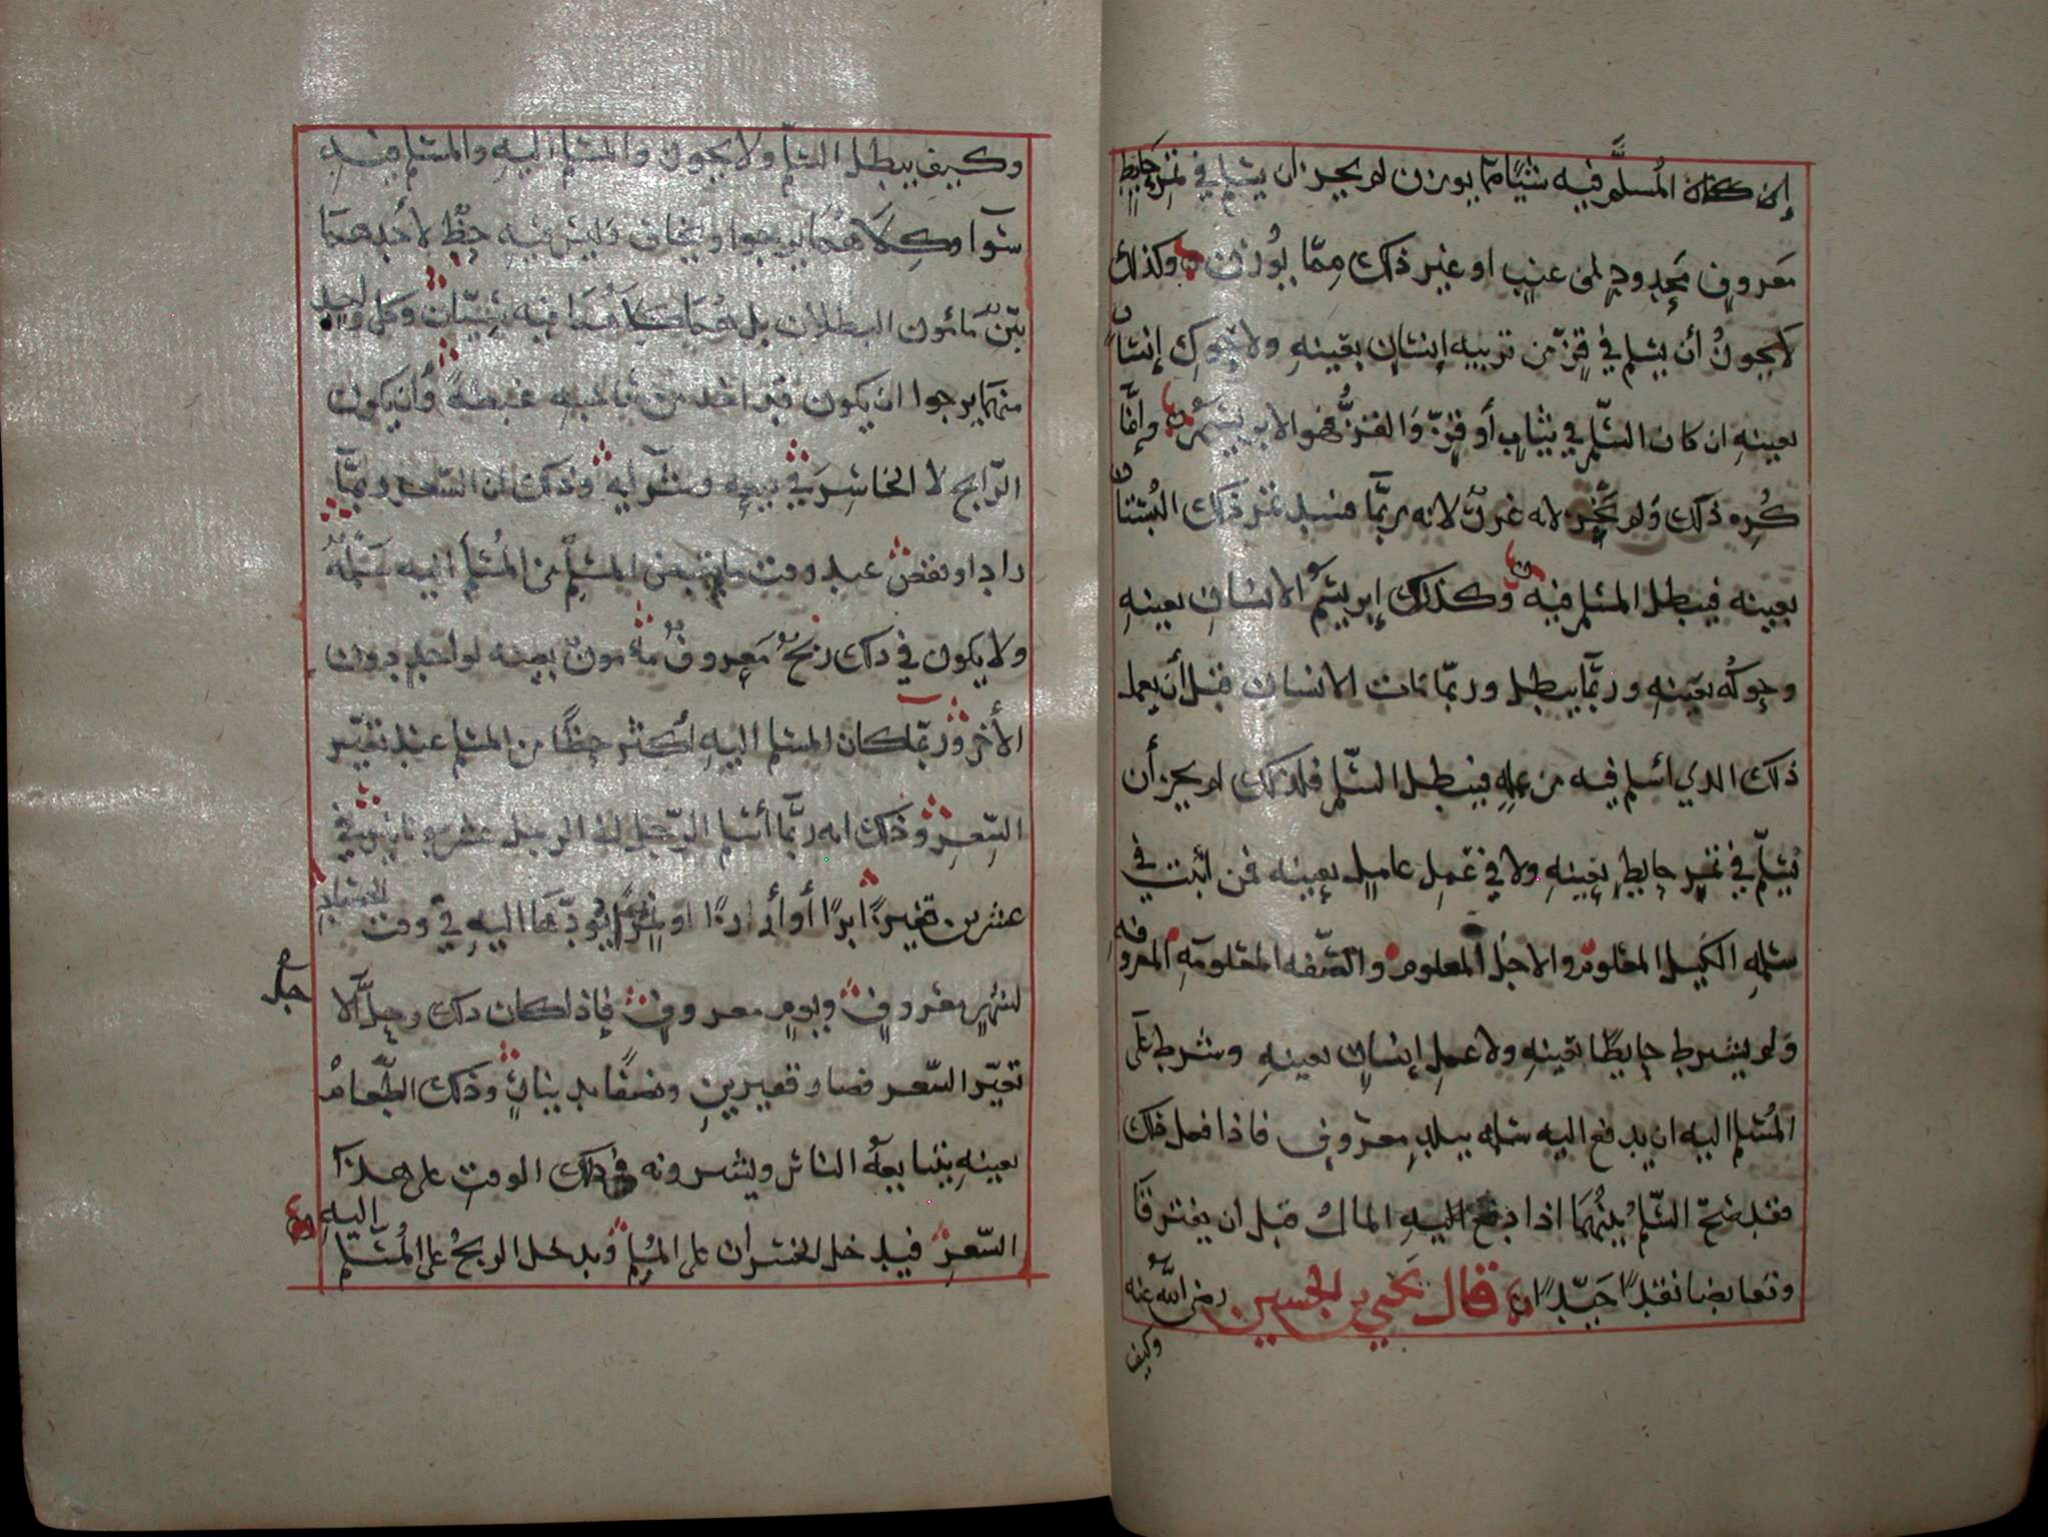 إن كان المُسلَّم فيه شيئًا مما يوزن لم يجز ان يسلم في ثمرة حايط
معروفٍ محدودٍ من عنبٍ او غير ذلك مِمّا يُوزن وكذلك
لا يجوز أن يسلم في قزٍّ من تربيه إنسانٍ بعينهِ ولا حَوكِ إنسانٍ
بعينهِ ان كان السّلم في ثيابٍ أو قزٍّ وَالقزُّ فهو الابريسَم وإنّما
كُرِه ذلك ولم يَجُز لانه غررٌ لانه ربّما فسد ثمر ذلك البُستان
بعينه فيبطل المسلم فيه وكذلك إبريسَم الانسان بعينهِ
وحوكُه بعَينهِ وربّما يبطل وربّما مات الانسان قبل أن يعمل
ذلك الذي اسلم فيه من عملِهِ فيبطل السّلم فلذلك لم يجز أن
يُسلّم في ثمر حايطٍ بعينهِ ولا في عَملِ عاملٍ بعينه فمن أثبت في
سلمهِ الكَيل المعلوم والاجَل المعلوم والصّفه المعَلومَه المعروفه
ولم يشرط حايطًا بعَينهِ ولا عمل إنسانٍ بعينهِ وشرط على
المُسلم اليه ان يدفع اليه سلمه ببلدٍ معروفٍ فاذا فعل ذلك
فقد صَحّ السّلمُ بينهُمَا اذا دفع اليهِ المال قبل ان يفترقَا
وتعايضا نقدًا جَيّدًا قال يَحيى بن الحسين رضى الله عنه
وكيف
وكيف يبطل السلّم ولا يجوز والمسلم اليهِ والمسلم فيه
سَوآ وكِلاهُمَا يرجوا ويخاف وَليسَ فيهِ حظٌّ لاحَدهمَا
بيّنٌ مَامُون البطلان بل هُمَا كِلاهُمَا فيه سِيّان وكل واحدٍ
منهمَا يرجوا ان يكون قد اخذ من صَاحبهِ غبطةً وأن يكون
الرّابح لا الخاسِرَ في بيعِه وشرآيه وذلك ان السّعر ربّمَا
زاد او نقص عند وقت مايقبض المسلِم من المُسلَم اليه سَلمَهُ
ولا يكون في ذلك ربحٌ مَعروفٌ مامونٌ بعينه لواحدٍ دون
الأخر وربّما كان المسلم اليهِ أكثر حظًا من المسلم عند تغيّر
السّعرِ وذلك انه ربّما أسلم الرّجل الى الرجل عشرين دينارًا في
عشرين قفيزًا بُرًا أو أرزًا او تمرًا يُودّيهَا اليهِ في وقت الحصَادِ
لشهرٍ معَروفٍ ويومٍ معروفٍ فإذا كان ذلك وحلَّ الا
جل
تغيّر السّعر فصار قفيزينِ ونصفًا بدينارٍ وذلك الطّعام
بعينهِ يتبايعه الناس ويشرونه في ذلك الوقتِ على هذا
السّعرِ فيدخل الخسران على المُسلم ويدخل الربحُ على المُسَلَّم
اليهِ